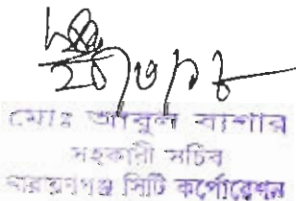 মোঃ আবুল বাশার
সহকারী সচিব
নারায়ণগঞ্জ সিটি কর্পোরেশন